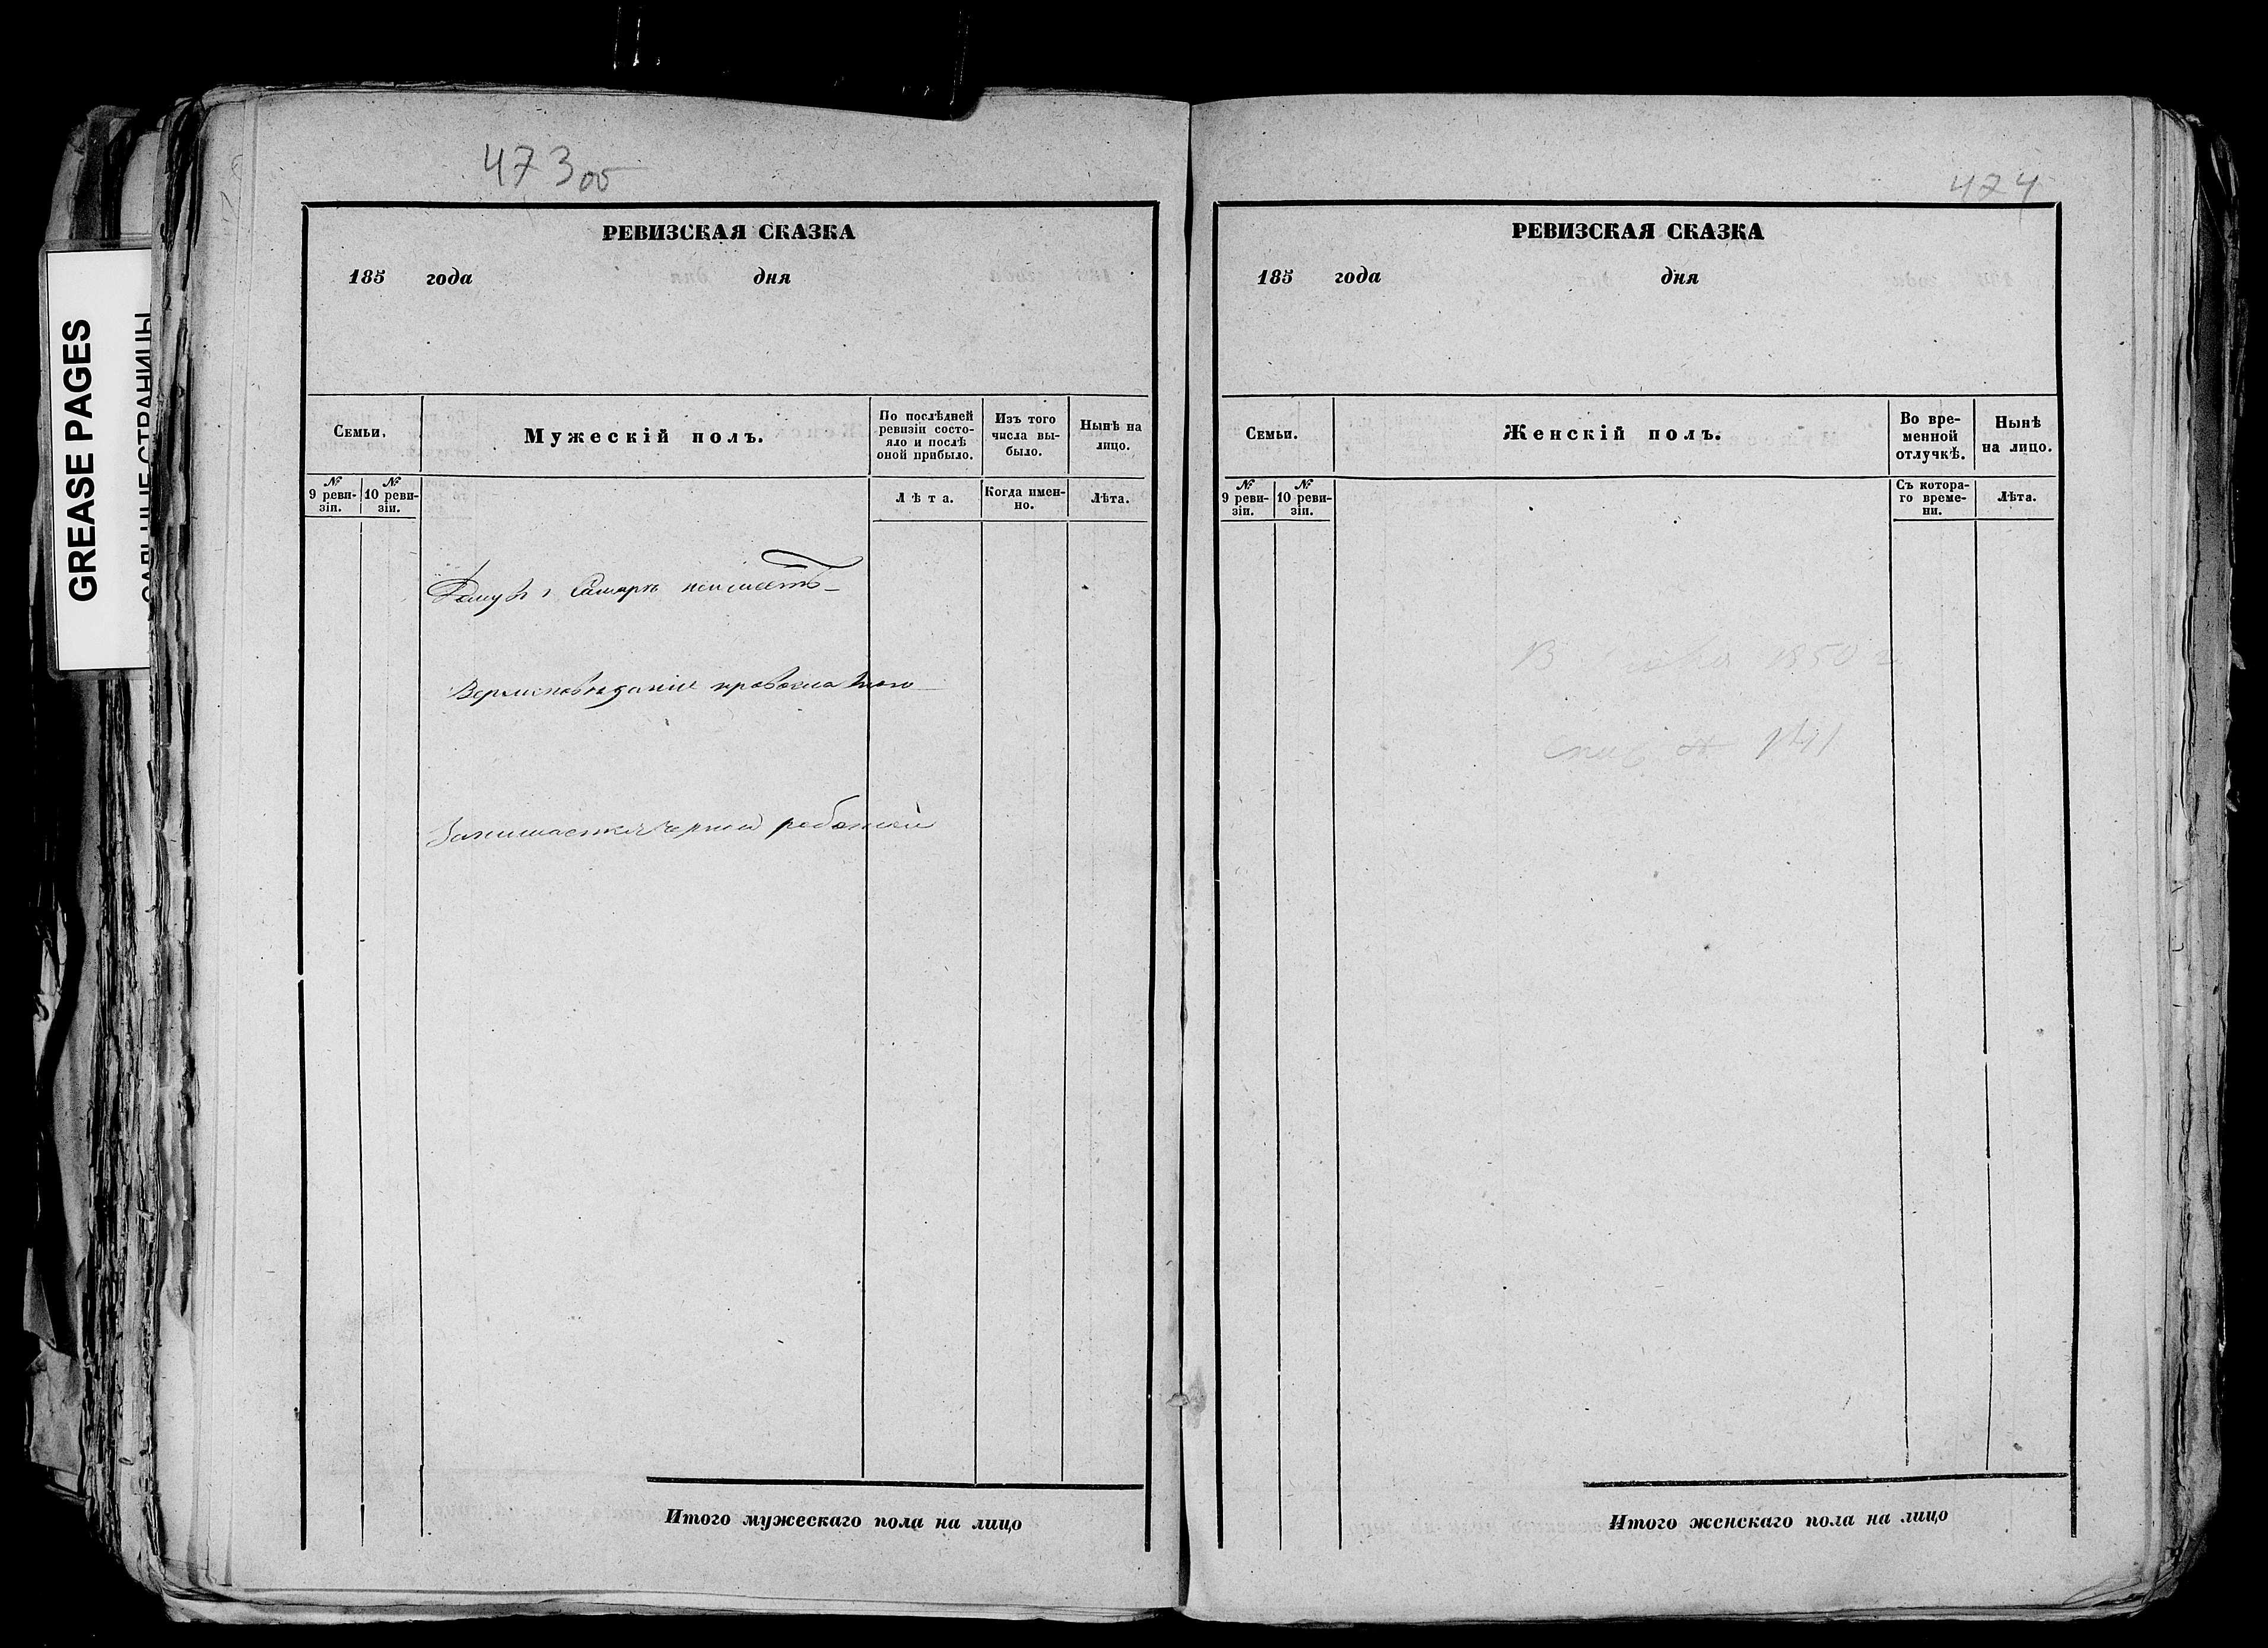 GREASE PAGES
473об
РЕВИЗСКАЯ СКАЗКА
185 года дня
Семьи.
Мужескій полъ.
По послѣдней ревизіи состояло и послѣ оной прибыло.
Изъ того числа выбыло.
Нынѣ на лицо.
№ 9 ревизіи.
№ 10 ревизіи.
Лѣта.
Когда именно.
Лѣта.
Домув г Самарѣ неимѣетъ
Вероисповѣданія православнаго
Занимается черной работой
Итого мужескаго пола на лицо
474
РЕВИЗСКАЯ СКАЗКА
185 года дня
Семьи.
Женскій полъ.
Во временной отлучкѣ.
Нынѣ на лицо.
№ 9 ревизіи.
№ 10 ревизіи.
Съ котораго времени.
Лѣта.
В 1850 г
Итого женскаго пола на лицо